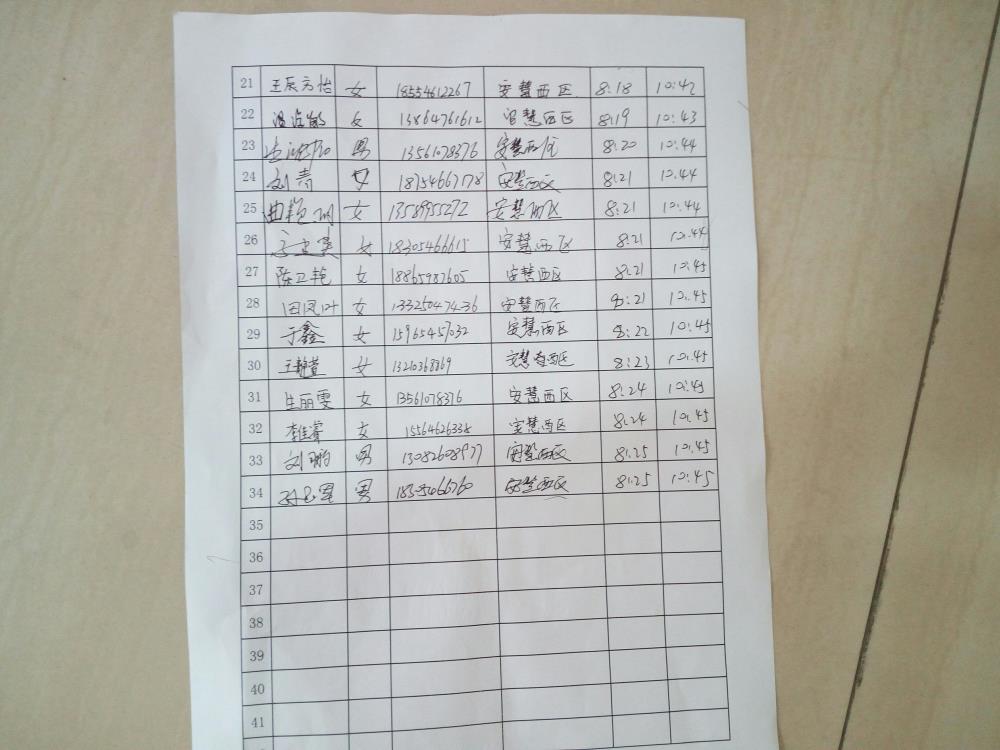 21 王辰方怡 女 18554612267 安慧西区 8:18 10:42
22 女 13864761612 智慧西区 8:19 10:43
23 男 13561078376 安慧西区 8:20 10:44
24 刘青 女 18754667178 安慧西区 8:21 10:44
25 曲艳 女 13589955272 安慧西区 8:21 10:44
26 女 18305466615 安慧西区 8:21 10:44
27 陈卫艳 女 18865987605 安慧西区 8:21 10:45
28 田凤叶 女 13325047436 安慧西区 8:21 10:45
29 于鑫 女 15965457032 安慧西区 8:22 10:45
30 王静萱 女 13210368869 安慧西区 8:23 10:45
31 生丽雯 女 13561078376 安慧西区 8:24 10:45
32 李佳睿 女 15564626338 安慧西区 8:24 10:45
33 刘鹏 男 13082608977 安慧西区 8:25 10:45
34 男 安慧西区 8:25 10:45
35
36
37
38
39
40
41